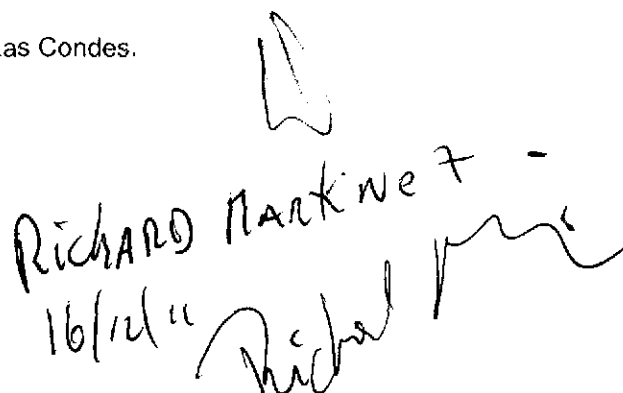 Las Condes.
RicHARD MARtiNez -
16/12/11
Richard